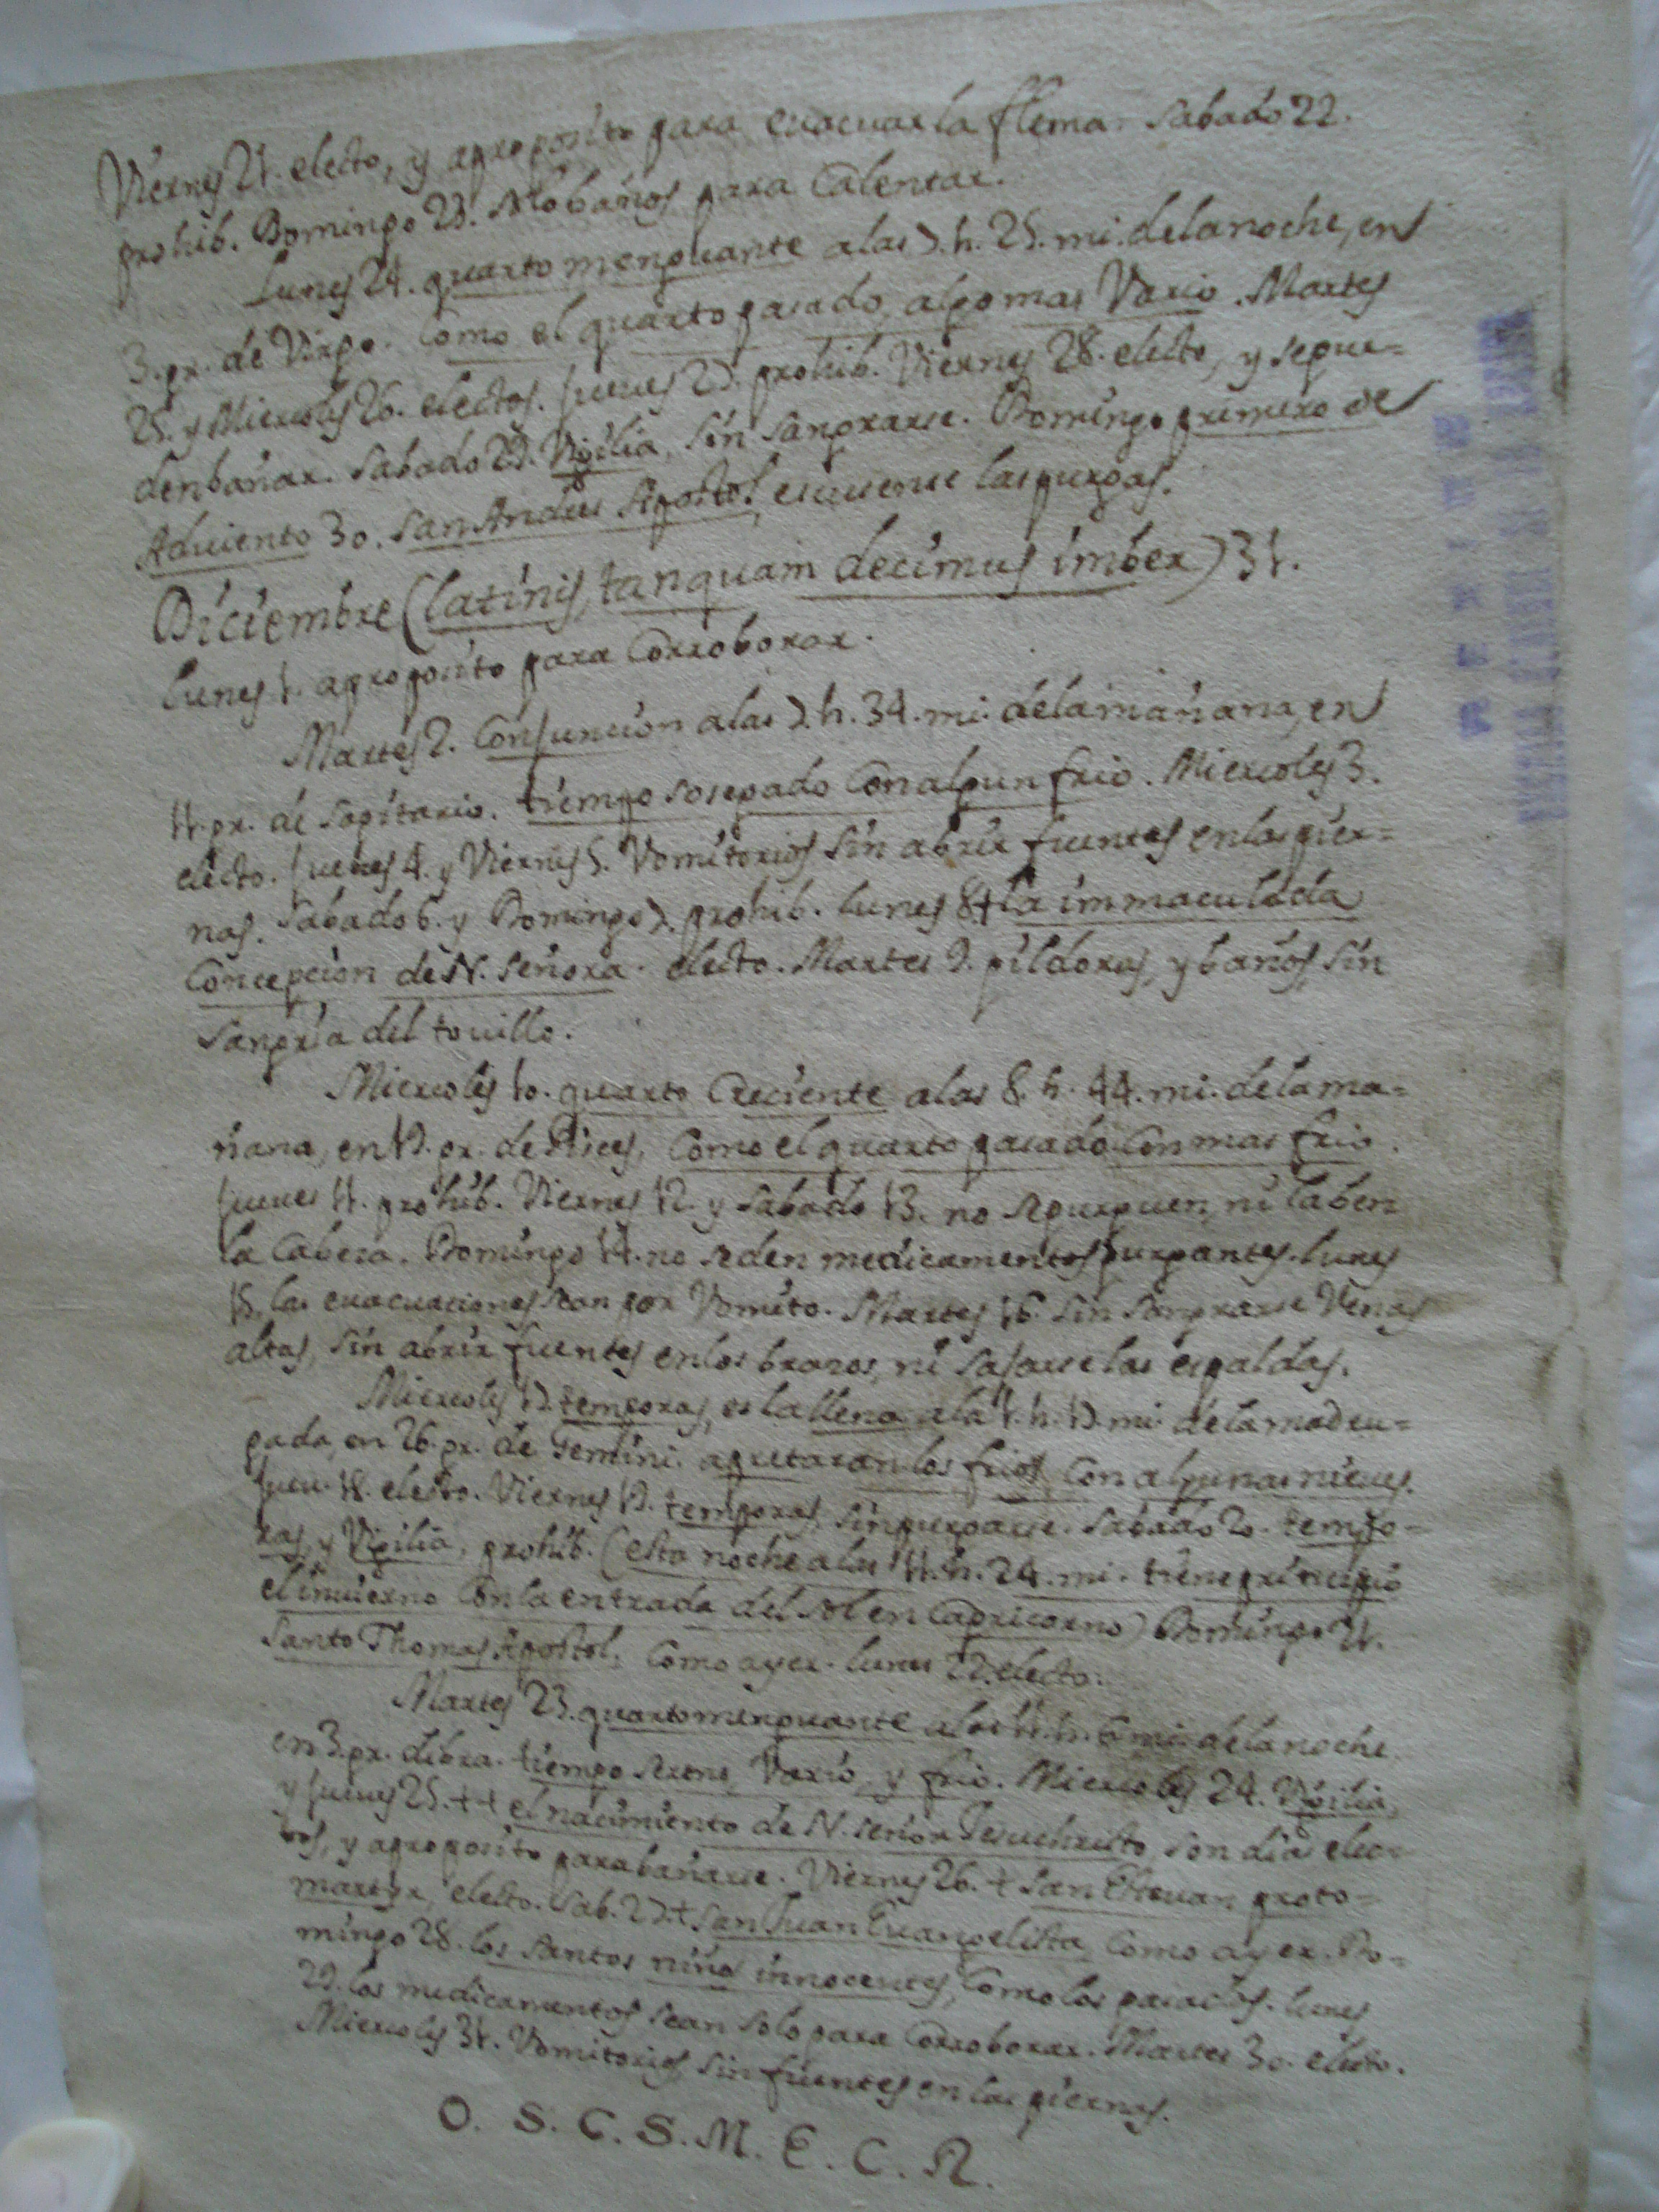 Viernes 21. electo, y aproposito para evacuar la flema. Sabado 22.
prohib. Domingo 23. solo baños para Calentar.
Lunes 24. quarto menguante a las 7. h. 25. mi. de la noche, en
3. gr. de Virgo. Como el quarto pasado, algo mas Vario. Martes
25. y Miercoles 26. electos. Jueves 27. prohib. Viernes 28. electo, y se pue=
den bañar. Sabado 29. Vigilia, sin sangrarse. Domingo primero de
Adviento 30. San Andres Apostol, escusense las purgas.
Diciembre (latinis, tanquam decimus imber) 31.
Lunes 1. aproposito para Corroborar.
Martes 2. Conjuncion a las 7. h. 34. mi. de la mañana, en
11. gr. de Sagitario. tiempo sosegado Con algun frio. Miercoles 3.
electo. Jueves 4. y Viernes 5. Vomitorios sin abrir fuentes en las pier=
nas. Sabado 6. y Domingo 7. prohib. Lunes 8 + la immaculada
Concepcion de N. Señora. electo. Martes 9. pildoras, y baños, sin
sangria del tovillo.
Miercoles 10. quarto Creciente a las 8. h. 44. mi. de la ma=
ñana, en 19. gr. de Pisces, Como el quarto pasado Con mas frio.
Jueves 11. prohib. Viernes 12. y Sabado 13. no se purguen, ni laben
la Cabeza. Domingo 14. no se den medicamentos purgantes. Lunes
15, las evacuaciones sean por Vomito. Martes 16. sin sangrarse Venas
altas, sin abrir fuentes en los brazos, ni sajarse las espaldas.
Miercoles 17. temporas, es la llena a la 1. h. 17. mi. de la madru=
gada, en 26. gr. de Gemini. apretaran los frios, Con algunas nieves.
Juev. 18. electo. Viernes 19. temporas, sin purgarse. Sabado 20. tempo=
ras, y Vigilia, prohib. (esta noche a las 11. h. 24. mi. tiene principio
el invierno Con la entrada del Sol en Capricorno) Domingo 21.
Santo Thomas Apostol. Como ayer. Lunes 22. electo.
Martes 23. quarto menguante a las 11. h. 6 mi. de la noche
en 3. gr. de Libra. tiempo sereno, Vario, y frio. Miercoles 24. Vigilia,
y Jueves 25. ++ el nacimiento de N. Señor Jesuchristo, son dias elec=
tos, y aproposito para bañarse. Viernes 26. + San Estevan, proto=
martyr, electo. Sab. 27. + San Juan Evangelista, Como ayer. Do=
mingo 28. los Santos niños innocentes, Como los pasados. Lunes
29. los medicamentos sean solo para Corroborar. Martes 30. electo.
Miercoles 31. Vomitorios, sin fuentes en las piernas.
O. S. C. S. M. E. C. R.